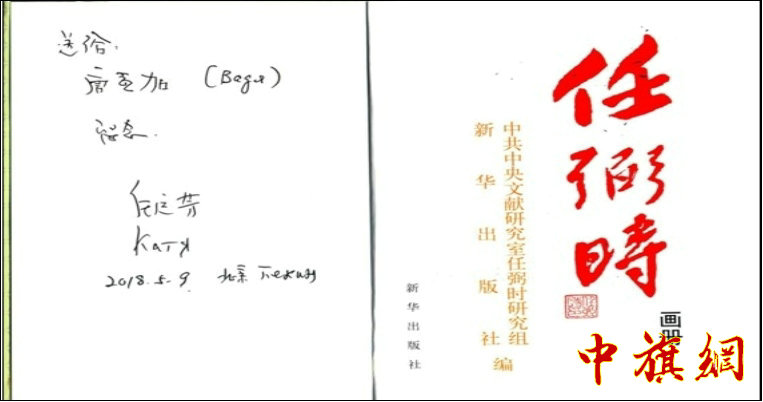 送给:
留念.
任远芳
Катя
2018.5.9 北京
任弼时
画册
中共中央文献研究室任弼时研究组
新华出版社
编
新华出版社
中旗網